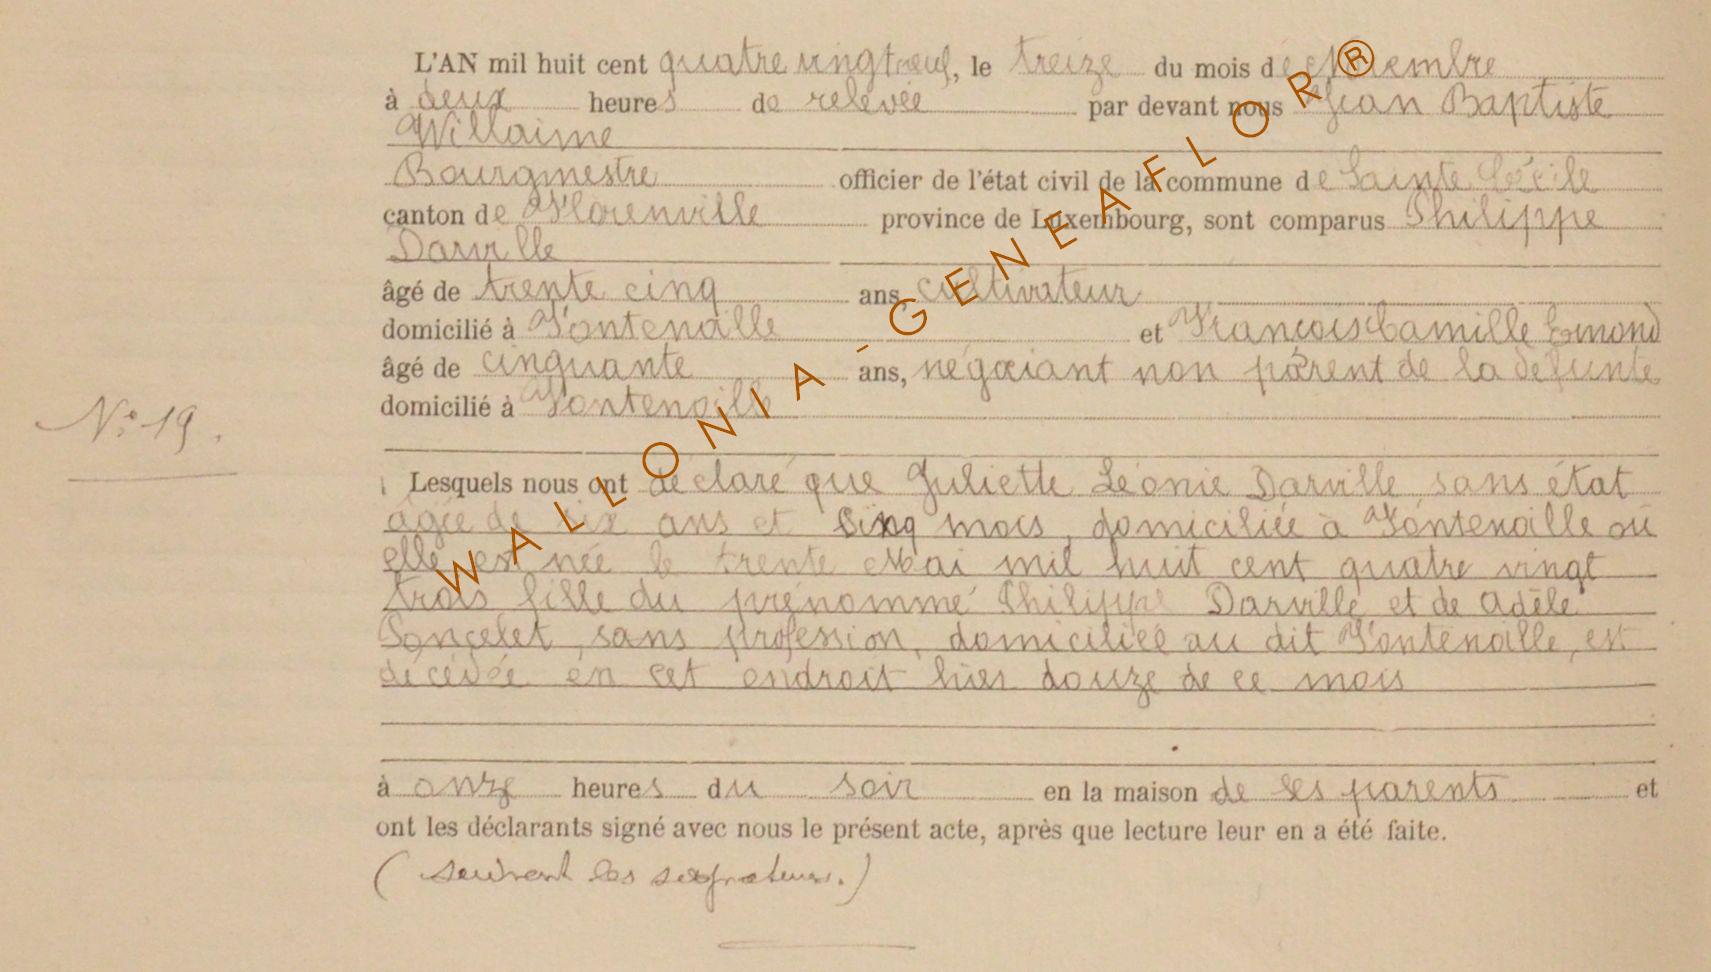 L'AN mil huit cent quatre vingt neuf, le treize du mois de Novembre
à deux heures de relevée par devant nous Jean Baptiste
Willaime
Bourgmestre officier de l'état civil de la commune de Sainte Cécile
canton de Florenville province de Luxembourg, sont comparus Philippe
Darville
âgé de trente cinq ans, cultivateur
domicilié à Fontenoille et François Camille Emond
âgé de cinquante ans, négociant non parent de la défunte
domicilié à Fontenoille
N° 19.
Lesquels nous ont déclaré que Juliette Léonie Darville sans état
âgée de six ans et cinq mois, domiciliée à Fontenoille où
elle est née le trente Mai mil huit cent quatre vingt
trois fille du prénommé Philippe Darville et de Adèle
Poncelet, sans profession, domiciliée au dit Fontenoille, est
décédée en cet endroit hier douze de ce mois
à onze heures du soir en la maison de ses parents et
ont les déclarants signé avec nous le présent acte, après que lecture leur en a été faite.
(suivent les signatures.)
WALLONIA-GENEAFLOR®